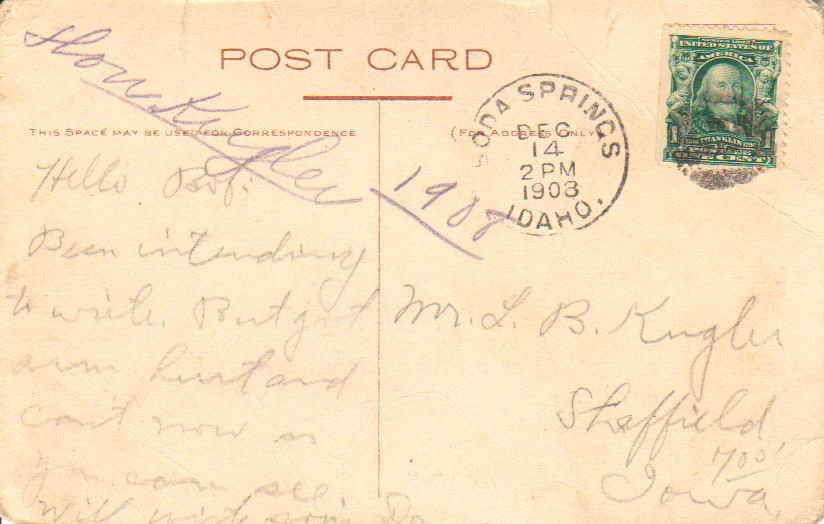 POST CARD
THIS SPACE MAY BE USED FOR CORRESPONDENCE
(FOR ADDRESS ONLY
Kugler
1908
SODA SPRINGS
DEC
14
2 PM
1908
IDAHO.
UNITED STATES OF
AMERICA
1 FRANKLIN 1
ONE CENT
Hello Bob:
Been intending
to write. But got
arm hurt and
can't now as
you can see
Will write soon
Mr. L. B. Kugler
Sheffield
Iowa